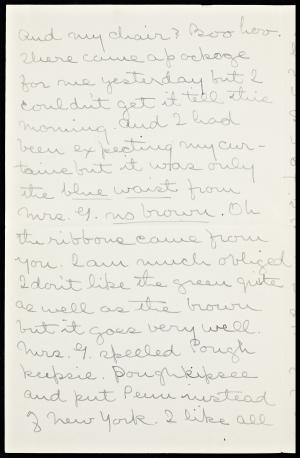 and my chair? Boo hoo.
There came a package
for me yesterday but I
couldn't get it till this
morning. And I had
been expecting my cur-
tains but it was only
the blue waist from
Mrs. G. no brown. Oh
the ribbons came from
you. I am much obliged
I don't like the green quite
as well as the brown
but it goes very well.
Mrs. G. spelled Pough
keepsie. Poughkipsee
and put Penn instead
of New York. I like all